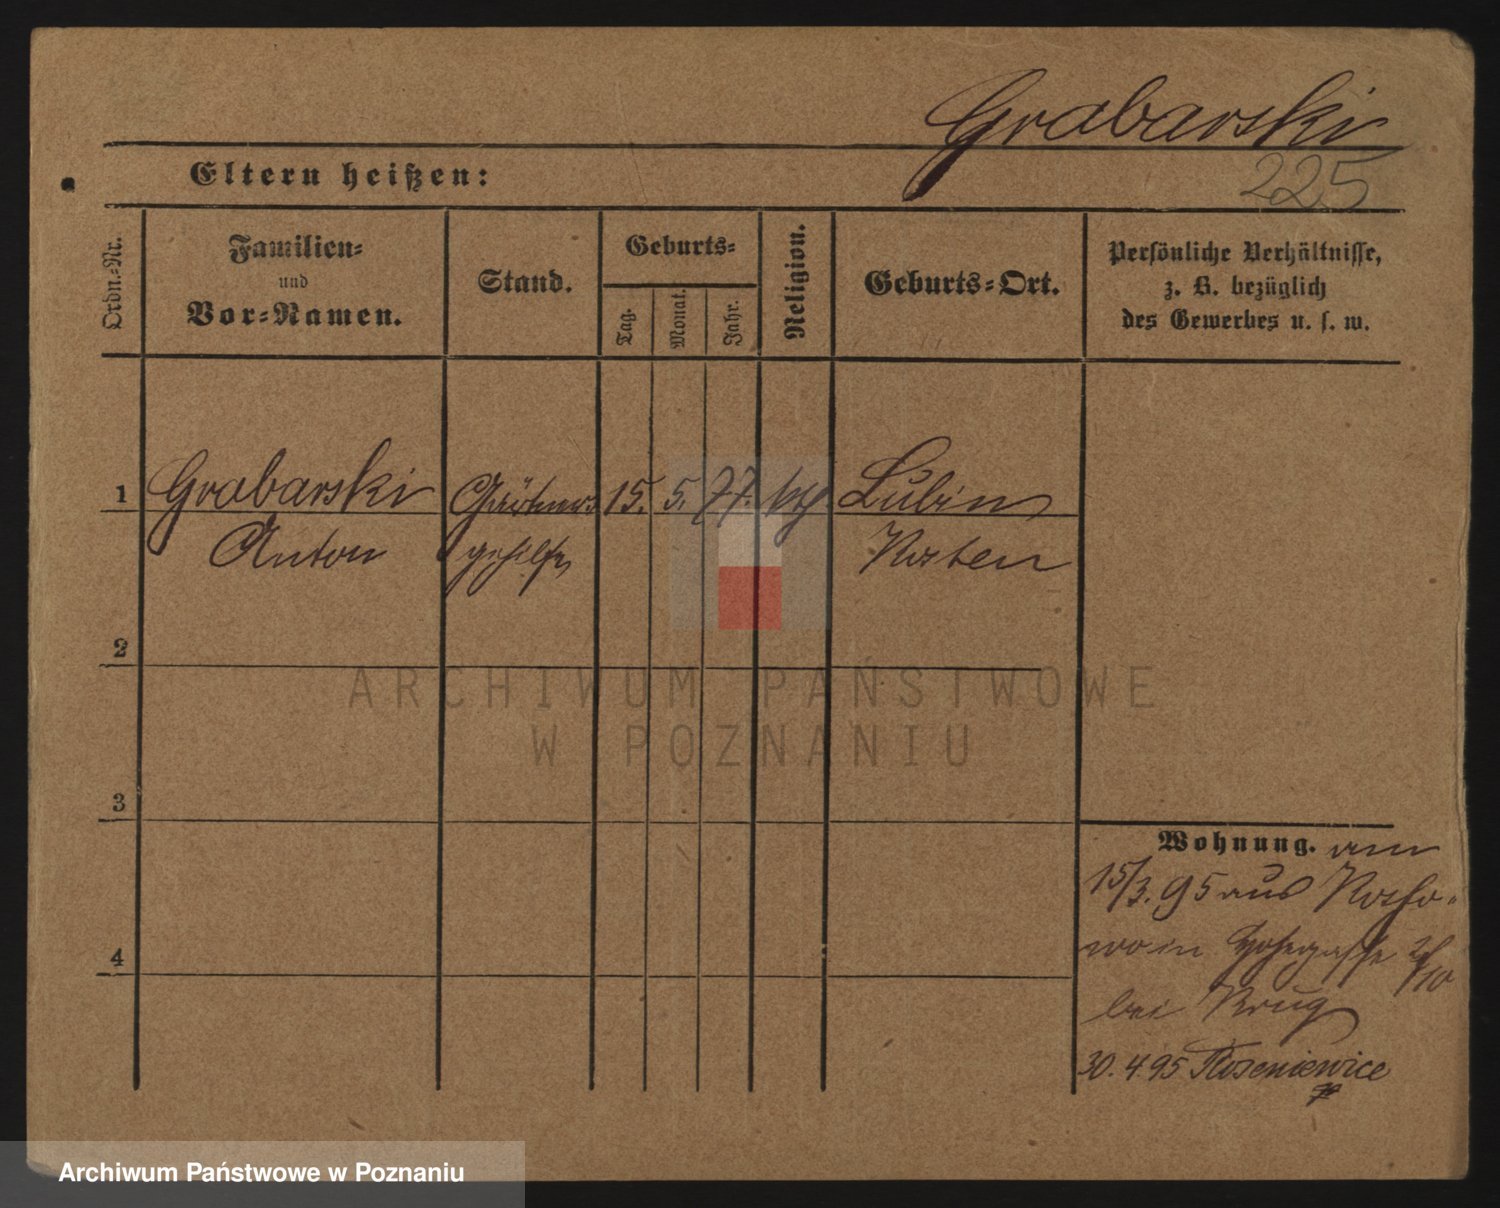 Grabarski
225
Eltern heißen:
Ordn.-Nr.
Familien-
und
Vor-Namen.
Stand.
Geburts-
Tag.
Monat.
Jahr.
Religion.
Geburts-Ort.
Persönliche Verhältnisse,
z. B. bezüglich
des Gewerbes u. s. w.
1 Grabarski Gärtner 15. 5. 77. kth Lubin
Anton gehilfe Kosten
2
3
4
Wohnung. am
15/3. 95 aus Koscho-
wo in
bei Krug
30. 4. 95
ARCHIWUM PAŃSTWOWE
W POZNANIU
Archiwum Państwowe w Poznaniu